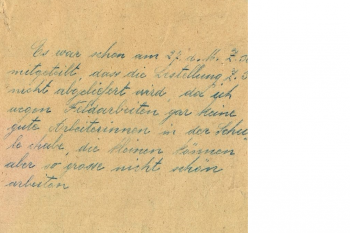 Es war schon am 27 d. M.
metgeteilt, dass die Bestellung
nicht abgeliefert wird, da ich
wegen Feldarbeiten gar keine
gute Arbeiterinnen in der Schu-
le habe, die kleinen können
aber so grosse nicht schön
arbeiten